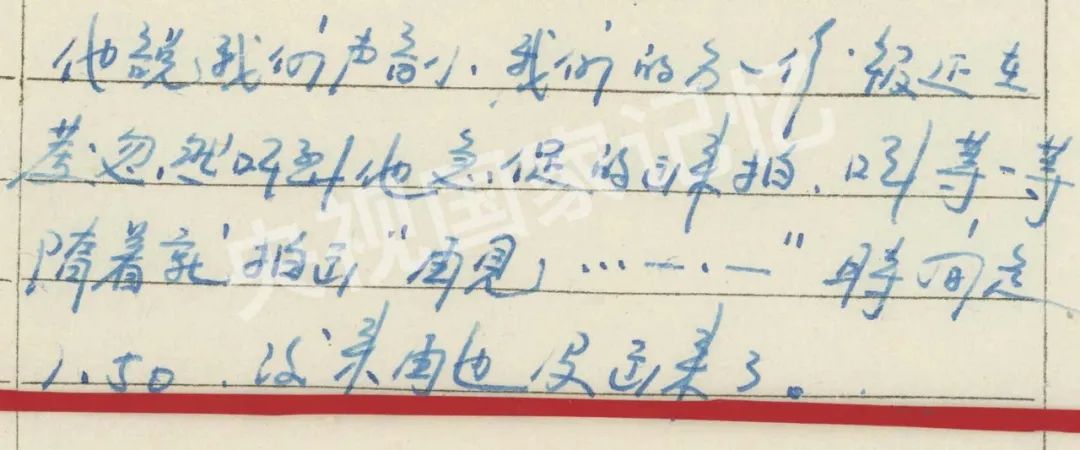 他說我们声音小.我们的另一份报还在
等.忽然听到他急促的过来拍.叫等一等
随着就拍过"再见,···—·—"時间是
1.50.以来再也没过来了。
央视国家记忆